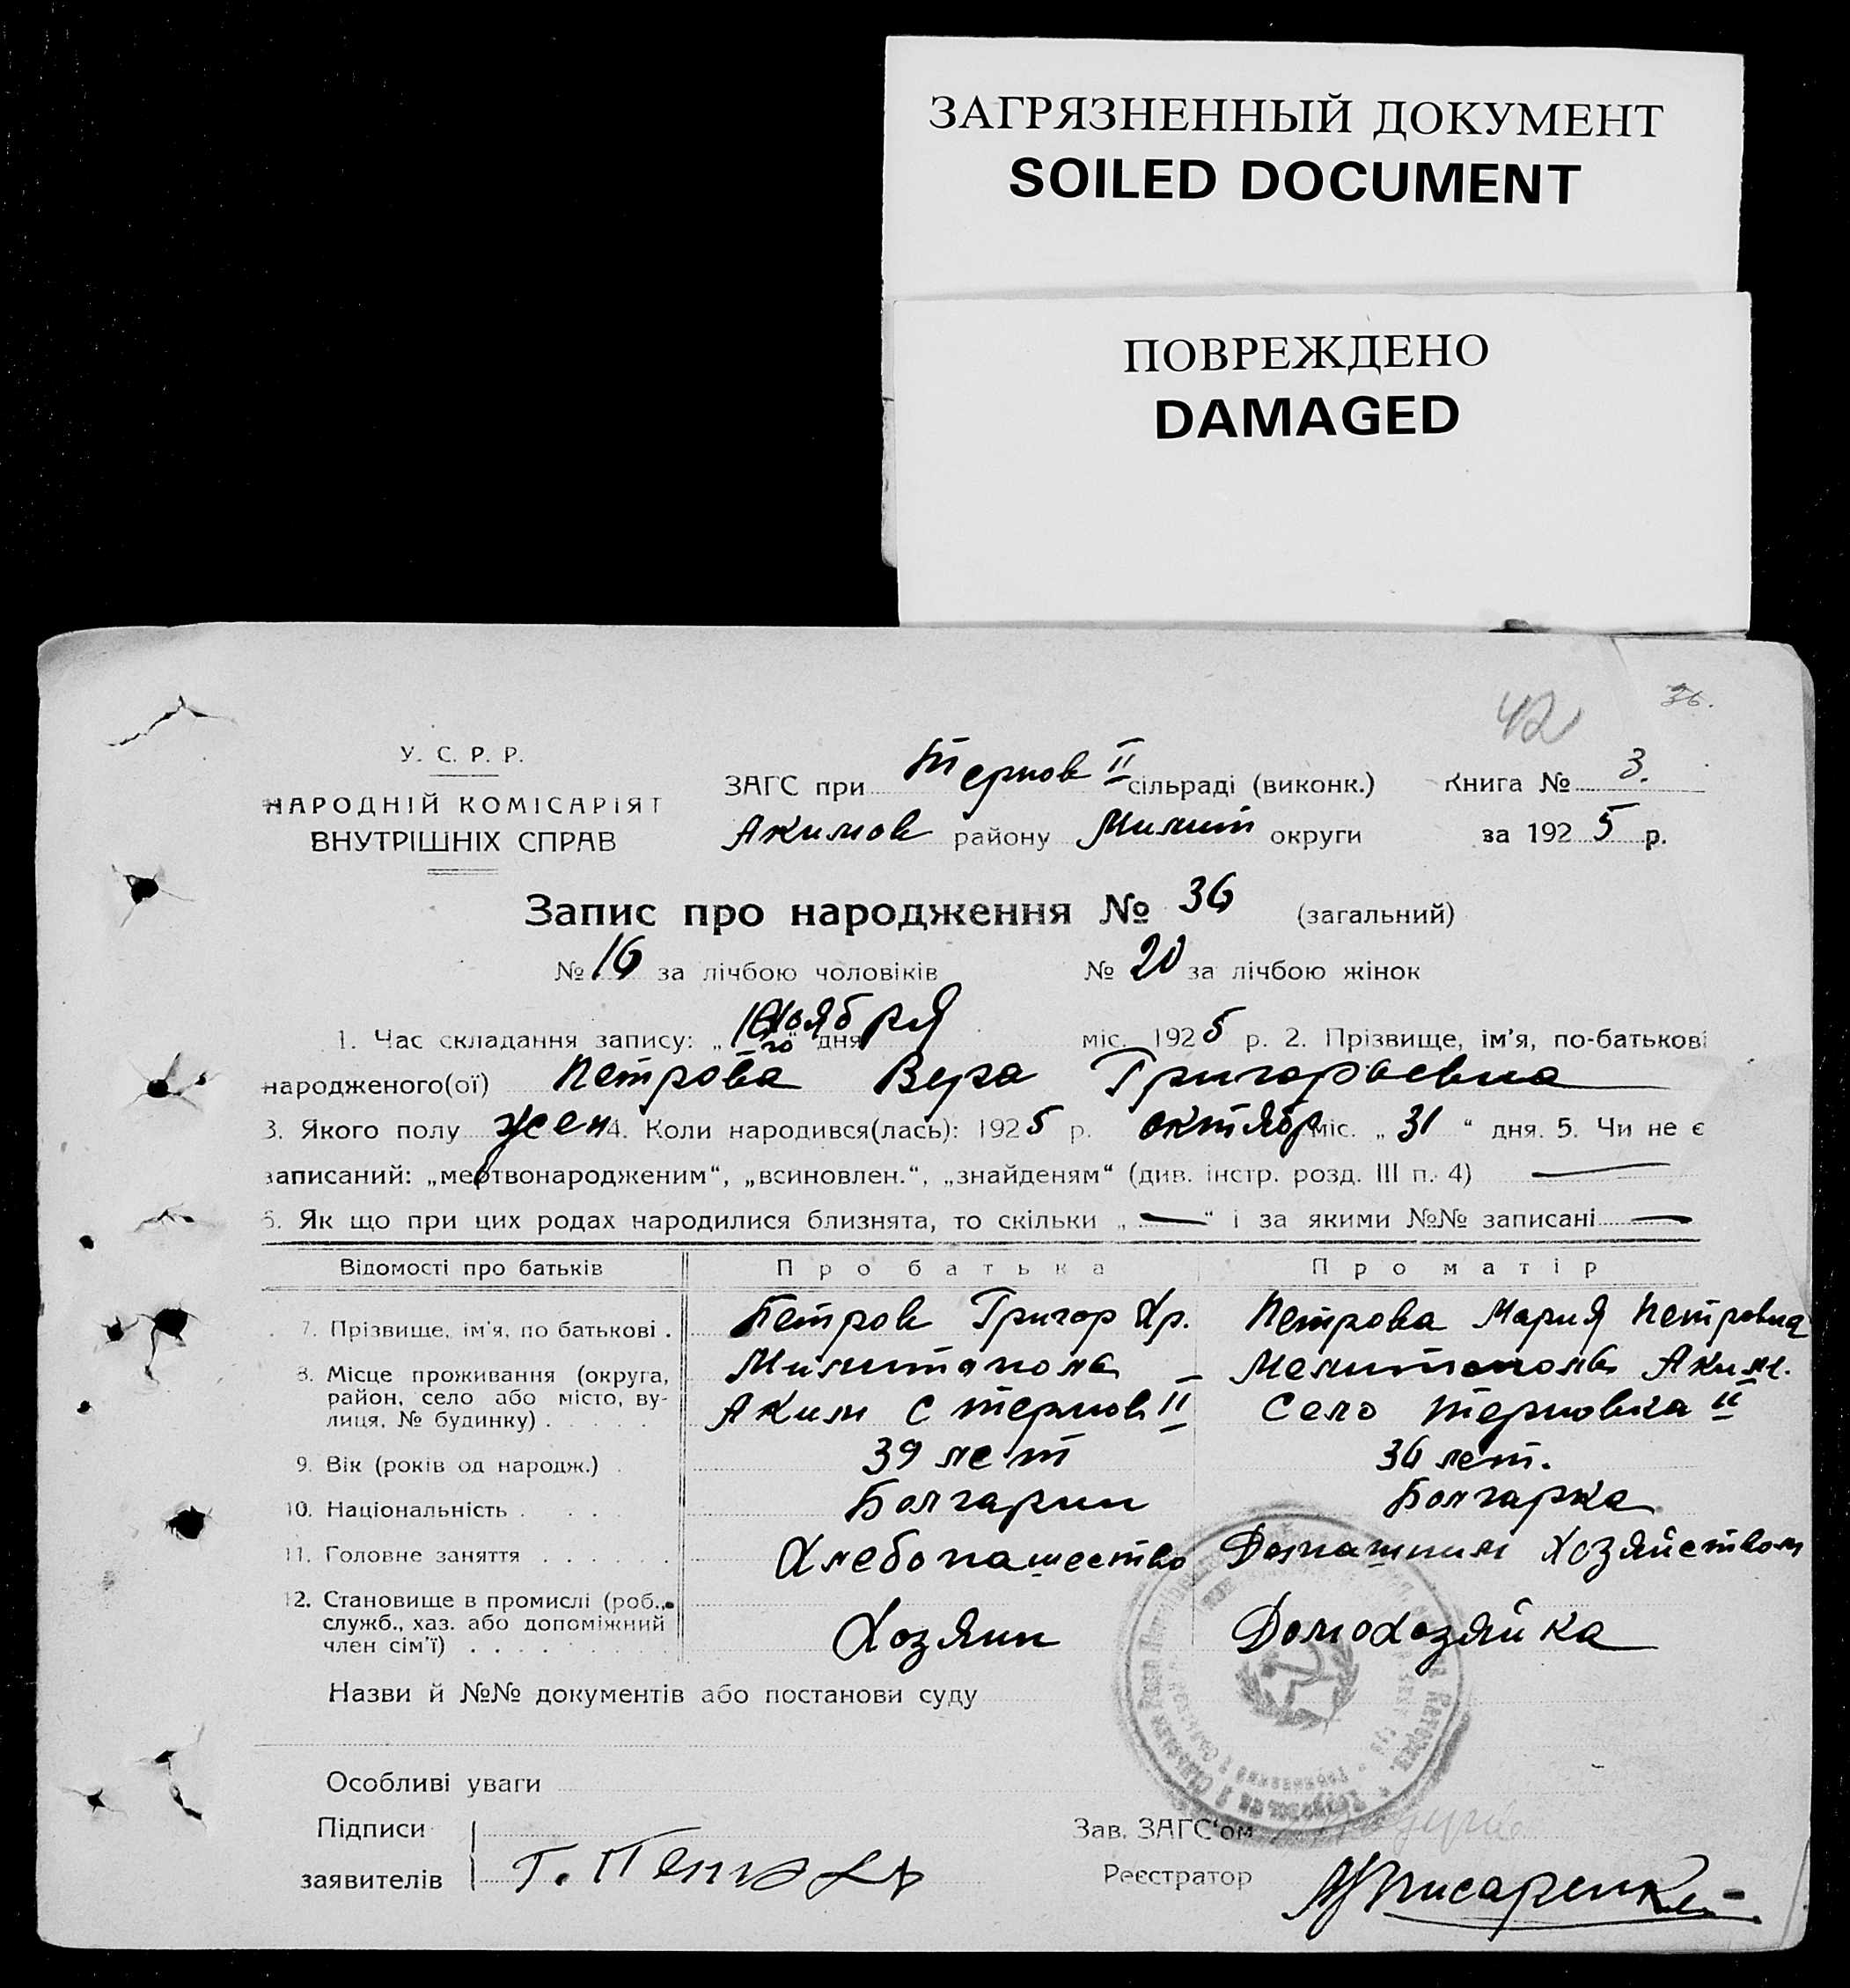 ЗАГРЯЗНЕННЫЙ ДОКУМЕНТ
SOILED DOCUMENT
ПОВРЕЖДЕНО
DAMAGED
42 36.
У. С. Р. Р.
НАРОДНІЙ КОМІСАРІЯТ
ВНУТРІШНІХ СПРАВ
ЗАГС при Тернов II сільраді (виконк.) Книга № 3.
Акимов району Милит округи за 1925 р.
Запис про народження № 36 (загальний)
№ 16 за лічбою чоловіків № 20 за лічбою жінок
1. Час складання запису: „ го“ дня ноября міс. 1925 р. 2. Прізвище, ім'я, по-батькові
народженого(ої) Петрова Вера Григорьевна
3. Якого полу жен 4. Коли народився(лась): 1925 р. октябр міс. „ 31 “ дня. 5. Чи не є
записаний: „мертвонародженим“, „всиновлен.“, „знайденям“ (див. інстр. розд. III п. 4) —
6. Як що при цих родах народилися близнята, то скільки „ — “ і за якими №№ записані —
Відомості про батьків Про батька Про матір
7. Прізвище, ім'я, по батькові . Петров Григор Хр. Петрова Мария Петровна
8. Місце проживання (округа, район, село або місто, вулиця, № будинку) . . . . . Милитополь – Мелитополь Аким.
Аким с тернов II Село терновка II
9. Вік (років од народж.) . 39 лет 36 лет.
10. Національність . . . . Болгарин Болгарка
11. Головне заняття . . . . . . Хлебопашество Домашним хозяйством
12. Становище в промислі (роб., служб., хаз. або допоміжний член сім'ї) . . . . . Хозяин Домохозяйка
Назви й №№ документів або постанови суду
Особливі уваги
Підписи
заявителів
Зав. ЗАГС'ом
Реєстратор Писаренко